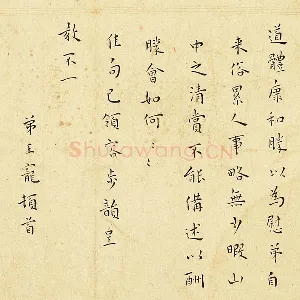 道體康和勝以為慰弟自
來俗累人事略無少暇山
中之清賞不能備述以酬
勝會如何如何
佳句已領容步韻呈
教不一
弟王寵頓首
Shufawang.CN